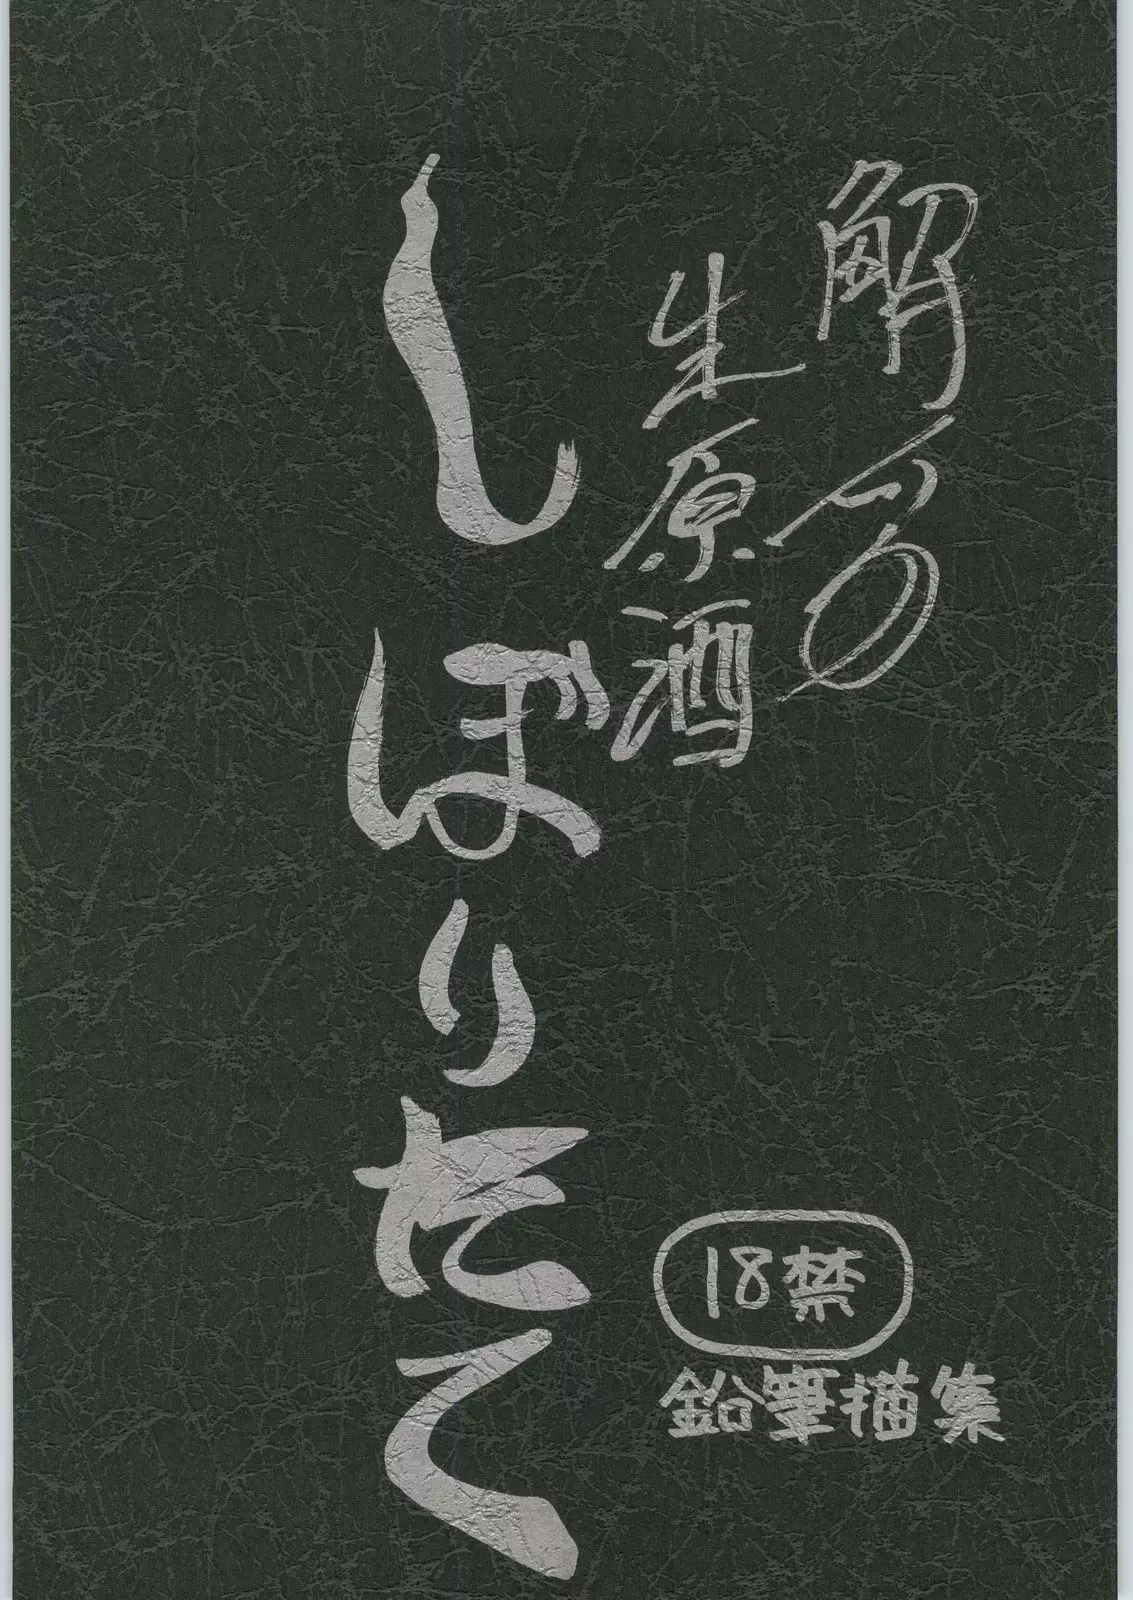 解 の
生原酒
しぼりたて
18禁
鉛筆描集